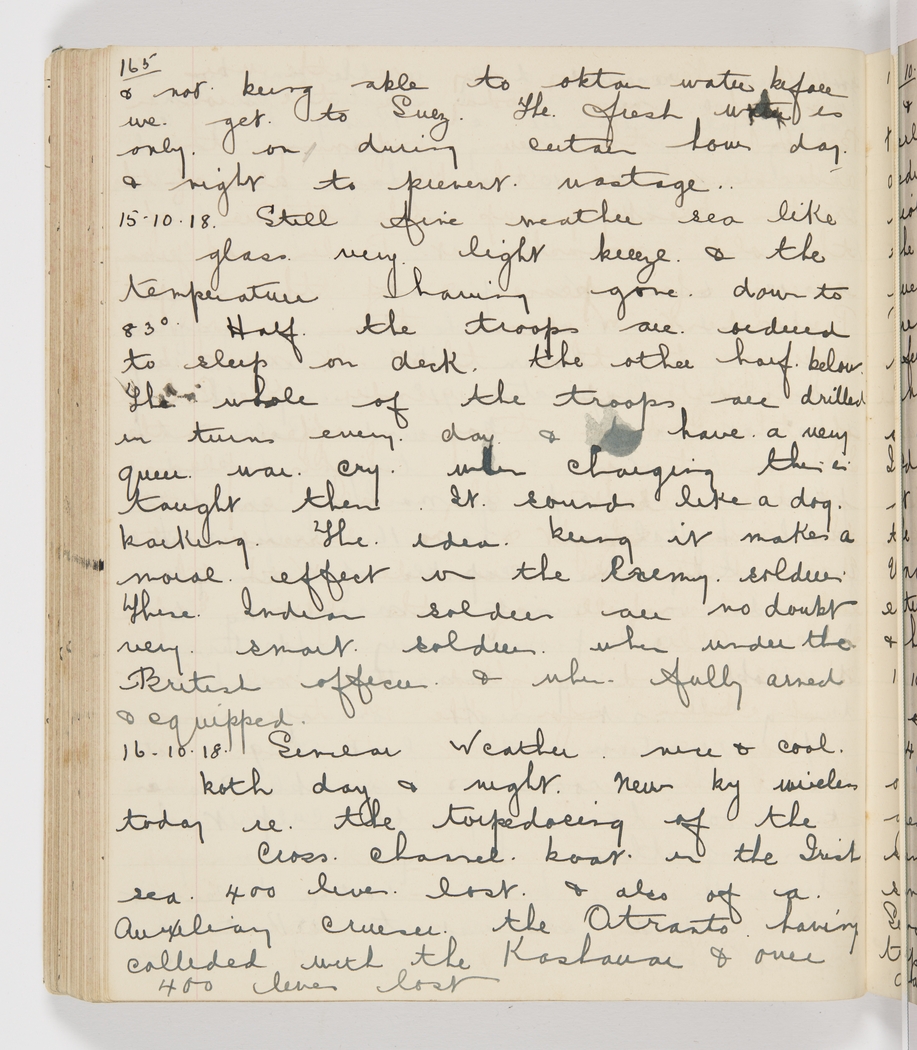 165
& not being able to obtain water before
we get to Suez. The fresh water is
only on during certain hours day
& night to prevent wastage..
15-10-18. Still fine weather sea like
glass very light breeze & the
temperature having gone down to
83° Half the troops are ordered
to sleep on deck. the other half below
The whole of the troops are drilled
in turns every day & have a very
queer war cry. when charging
taught them. It sounds like a dog
barking. The idea being it makes a
moral effect on the Enemy soldiers
These Indian soldiers are no doubt
very smart soldiers when under the
British officers & when fully armed
& equipped.
16-10-18. Similar Weather. nice & cool.
both day & night. News by wireless
today re. the torpedoeing of the
Cross channel boat in the Irish
sea. 400 lives lost. & also of a
Auxiliary cruiser the Otranto having
collided with the Kashmir & over
400 lives lost